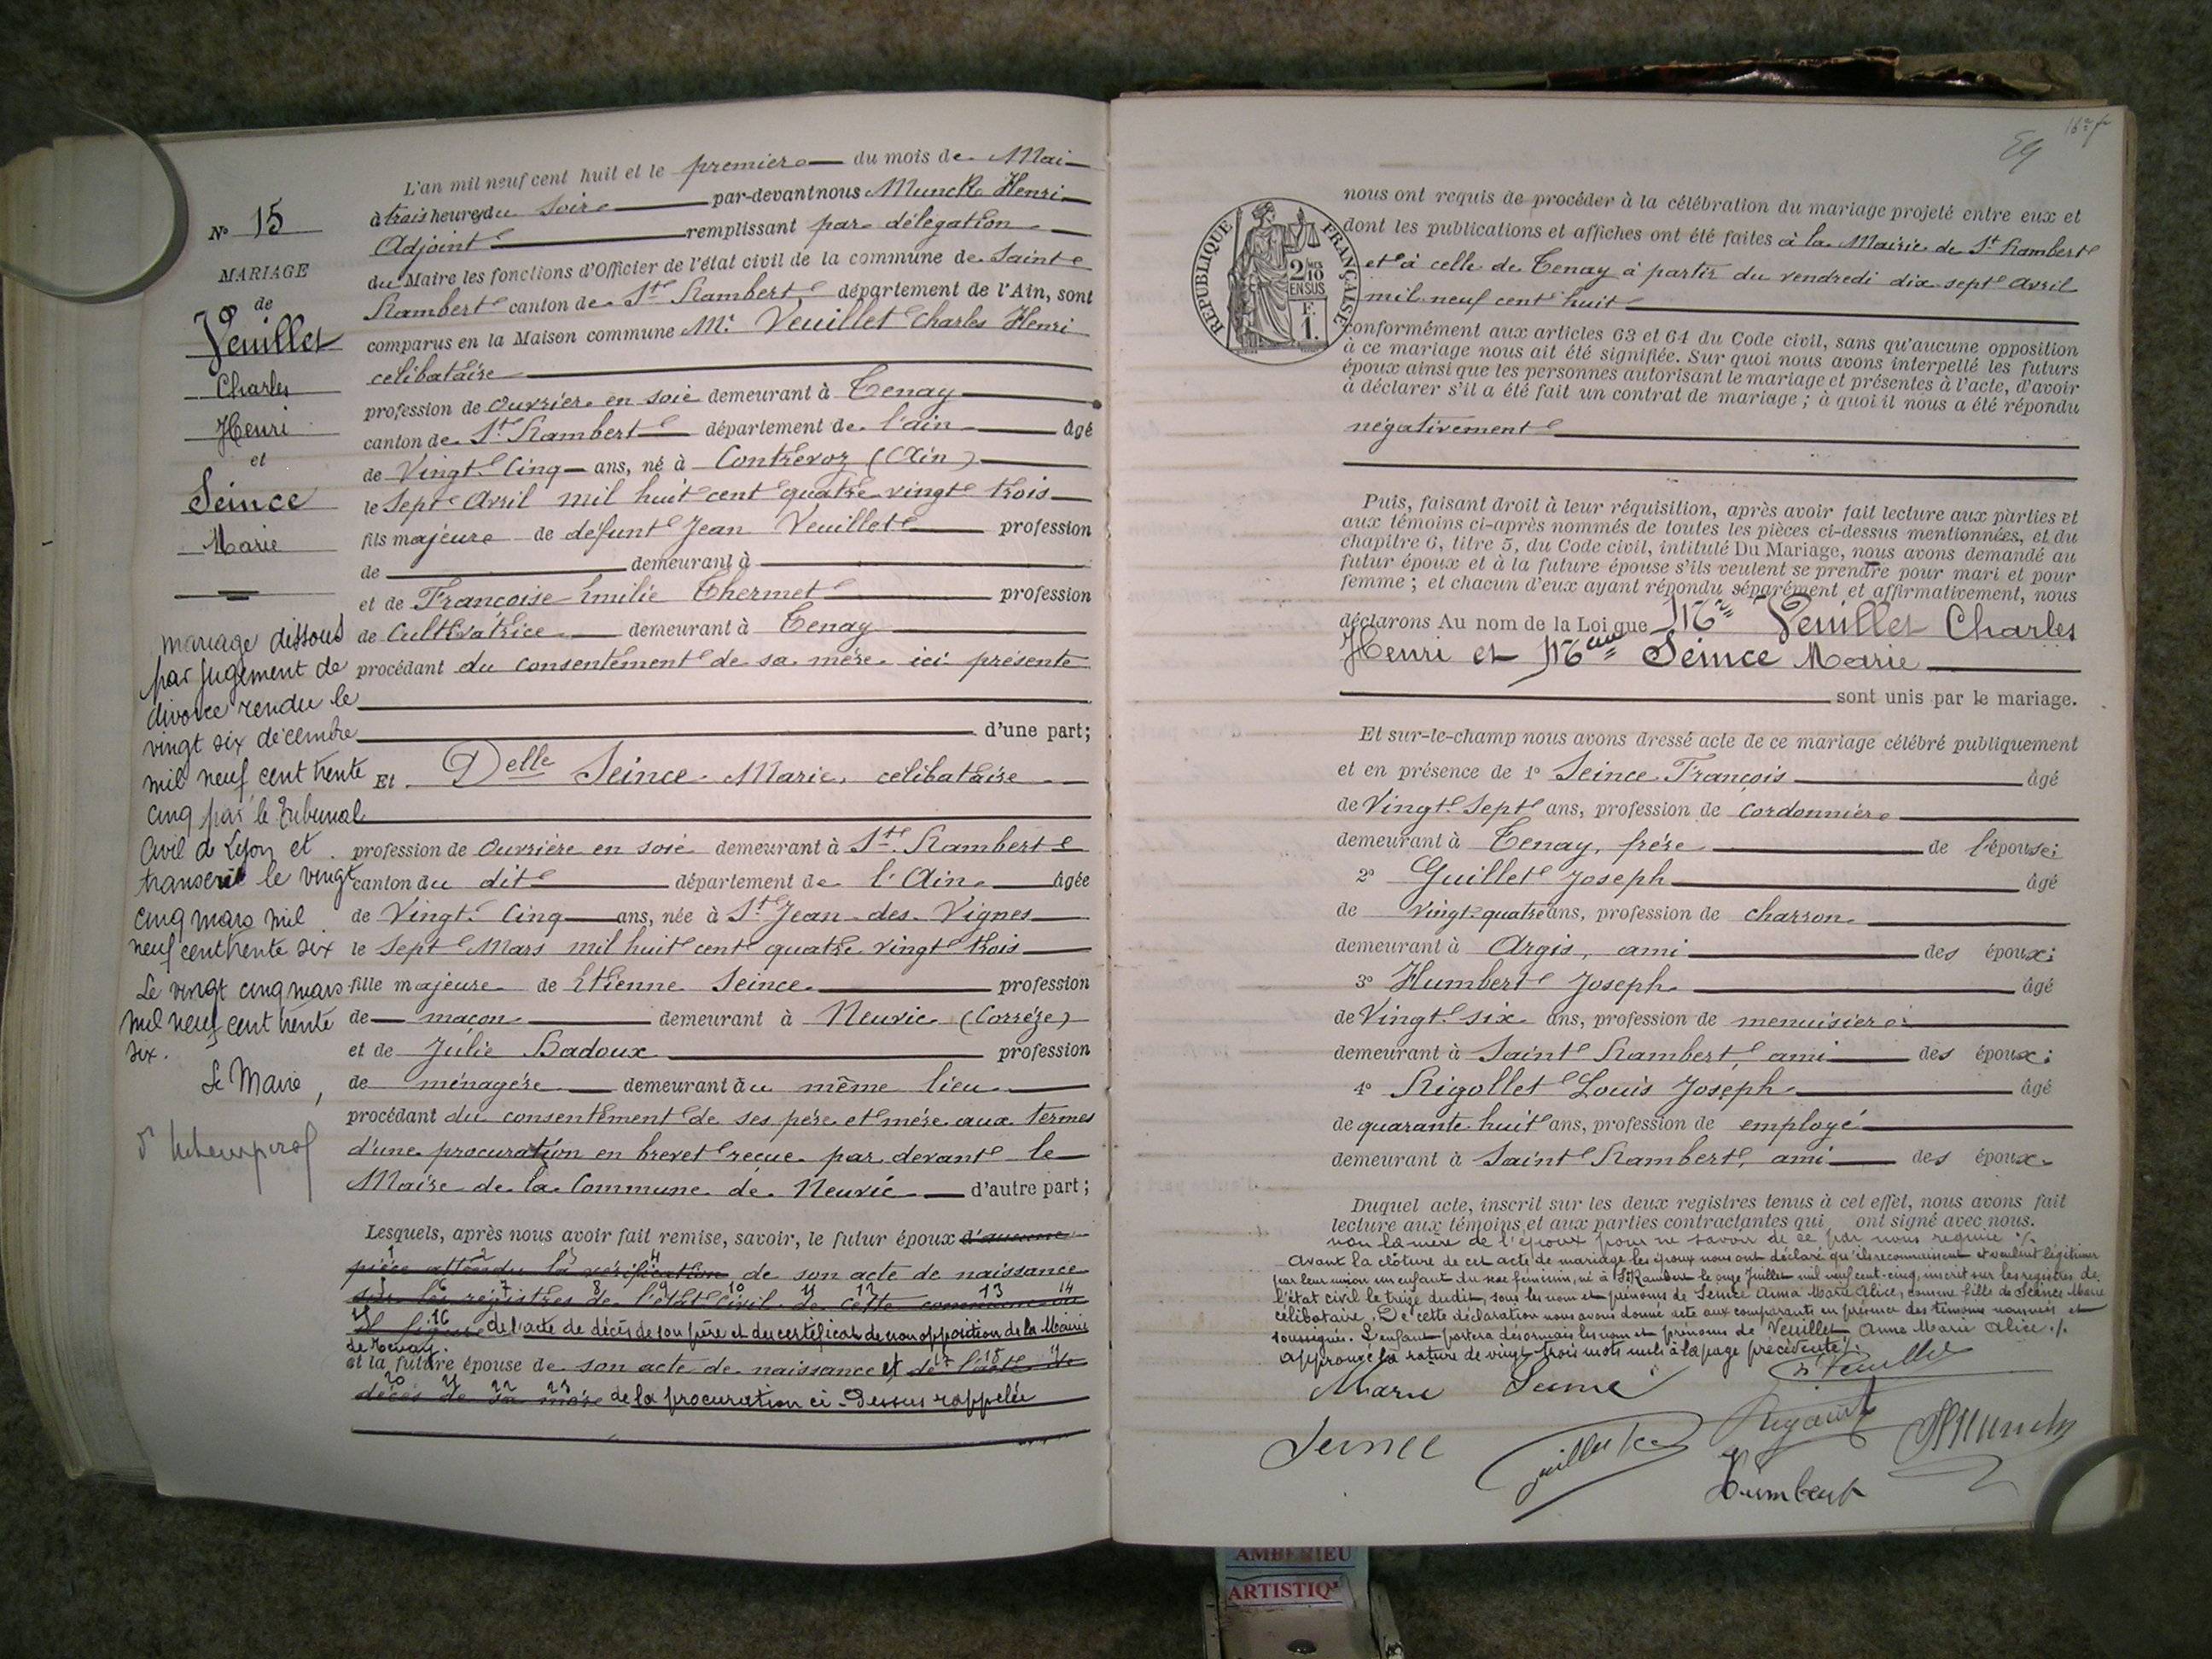 L'an mil neuf cent huit et le premier du mois de Mai
à trois heures du soir par-devant nous Munck Henri
Adjoint remplissant par délégation
du Maire les fonctions d'Officier de l'état civil de la commune de Saint
Rambert canton de St Rambert département de l'Ain, sont
comparus en la Maison commune Mr Veuillet Charles Henri
célibataire
profession de ouvrier en soie demeurant à Tenay
canton de St Rambert département de l'ain âgé
de Vingt Cinq ans, né à Contrevoz (Ain)
le Sept Avril mil huit cent quatre vingt trois
fils majeur de défunt Jean Veuillet profession
de demeurant à
et de Françoise Emilie Thermet profession
de Cultivatrice demeurant à Tenay
procédant du consentement de sa mère ici présente
d'une part;
Et Delle Seince Marie, célibataire
profession de Ouvrière en soie demeurant à St Rambert
canton du dit département de l'Ain âgée
de Vingt Cinq ans, née à St Jean des Vignes
le Sept Mars mil huit cent quatre vingt trois
fille majeure de Etienne Seince profession
de maçon demeurant à Neuvic (Corrèze)
et de Julie Badoux profession
de ménagère demeurant au même lieu
procédant du consentement de ses père et mère aux termes
d'une procuration en brevet reçue par devant le
Maire de la Commune de Neuvic d'autre part;
Lesquels, après nous avoir fait remise, savoir, le futur époux d'aucune
1 2 3 4
pièce attendu la vérification de son acte de naissance
5 6 7 8 9 10 11 12 13 14
sur les registres de l'état civil de cette commune où
15 16
il figure de l'acte de décès de son père et du certificat de non opposition de la Mairie
de Tenay.
et la future épouse de son acte de naissance et de l'acte de
17 18 19
20 21 22 23
décès de sa mère de la procuration ci-Dessus rappelée
No 15
MARIAGE
de
Veuillet
Charles
Henri
et
Seince
Marie
mariage dissous
par jugement de
divorce rendu le
vingt six décembre
mil neuf cent trente
cinq par le tribunal
Civil de Lyon et
transcrit le vingt
cinq mars mil
neuf cent trente six
Le vingt cinq mars
mil neuf cent trente
six.
Le Maire,
59
nous ont requis de procéder à la célébration du mariage projeté entre eux et
dont les publications et affiches ont été faites à la Mairie de St Rambert
et à celle de Tenay à partir du vendredi dix sept avril
mil neuf cent huit
RÉPUBLIQUE FRANÇAISE
2/10 MES
EN SUS
F.
1.
conformément aux articles 63 et 64 du Code civil, sans qu'aucune opposition
à ce mariage nous ait été signifiée. Sur quoi nous avons interpellé les futurs
époux ainsi que les personnes autorisant le mariage et présentes à l'acte, d'avoir
à déclarer s'il a été fait un contrat de mariage ; à quoi il nous a été répondu
négativement
Puis, faisant droit à leur réquisition, après avoir fait lecture aux parties et
aux témoins ci-après nommés de toutes les pièces ci-dessus mentionnées, et du
chapitre 6, titre 5, du Code civil, intitulé Du Mariage, nous avons demandé au
futur époux et à la future épouse s'ils veulent se prendre pour mari et pour
femme ; et chacun d'eux ayant répondu séparément et affirmativement, nous
déclarons Au nom de la Loi que Mr Veuillet Charles
Henri et Seince Marie
sont unis par le mariage.
Et sur-le-champ nous avons dressé acte de ce mariage célébré publiquement
et en présence de 1° Seince François âgé
de Vingt Sept ans, profession de cordonnier
demeurant à Tenay, frère de l'épouse;
2° Guillet Joseph âgé
de vingt quatre ans, profession de charron
demeurant à Argis, ami des époux;
3° Humbert Joseph âgé
de Vingt six ans, profession de menuisier
demeurant à Saint Rambert, ami des époux;
4° Rigollet Louis Joseph âgé
de quarante huit ans, profession de employé
demeurant à Saint Rambert, ami des époux
Duquel acte, inscrit sur les deux registres tenus à cet effet, nous avons fait
lecture aux témoins et aux parties contractantes qui ont signé avec nous.
non la mère de l'époux pour ne savoir de ce par nous requise ./.
Avant la clôture de cet acte de mariage les époux nous ont déclaré qu'ils reconnaissent et veulent légitimer
par leur union un enfant du sexe féminin, né à St Rambert le onze Juillet mil neuf cent-cinq, inscrit sur les registres de
l'état civil le treize dudit, sous les nom et prénoms de Seince Anna Marie Alice, comme fille de Seince Marie
célibataire. De cette déclaration nous avons donné acte aux comparants en présence des témoins nommés et
soussignés. L'enfant portera désormais les nom et prénoms de Veuillet Anna Marie Alice ./.
approuvé la rature de vingt trois mots nuls à la page précédente ./.
Marie Seince
Veuillet
Seince
Humbert
HMunck
AMBERIEU
ARTISTIQ